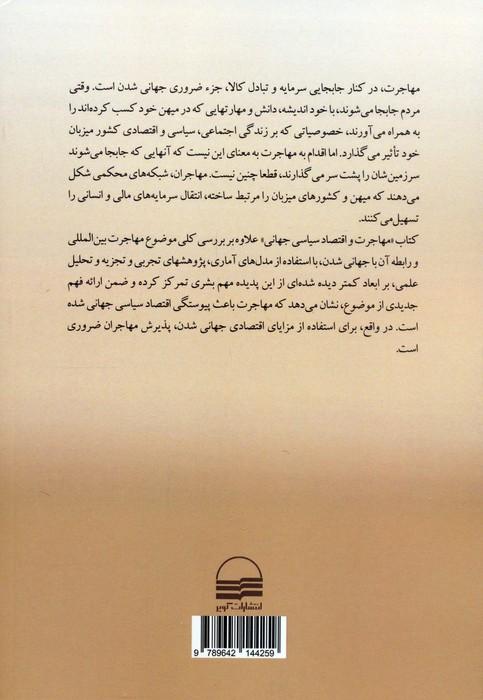 مهاجرت، در کنار جابجایی سرمایه و تبادل کالا، جزء ضروری جهانی شدن است. وقتی
مردم جابجا می‌شوند، با خود اندیشه، دانش و مهارتهایی که در میهن خود کسب کرده‌اند را
به همراه می‌آورند، خصوصیاتی که بر زندگی اجتماعی، سیاسی و اقتصادی کشور میزبان
خود تأثیر می‌گذارد. اما اقدام به مهاجرت به معنای این نیست که آنهایی که جابجا می‌شوند
سرزمین‌شان را پشت سر می‌گذارند، قطعا چنین نیست. مهاجران، شبکه‌های محکمی شکل
می‌دهند که میهن و کشورهای میزبان را مرتبط ساخته، انتقال سرمایه‌های مالی و انسانی را
تسهیل می‌کنند.
کتاب «مهاجرت و اقتصاد سیاسی جهانی» علاوه بر بررسی کلی موضوع مهاجرت بین‌المللی
و رابطه آن با جهانی شدن، با استفاده از مدل‌های آماری، پژوهشهای تجربی و تجزیه و تحلیل
علمی، بر ابعاد کمتر دیده شده‌ای از این پدیده مهم بشری تمرکز کرده و ضمن ارائه فهم
جدیدی از موضوع، نشان می‌دهد که مهاجرت باعث پیوستگی اقتصاد سیاسی جهانی شده
است. در واقع، برای استفاده از مزایای اقتصادی جهانی شدن، پذیرش مهاجران ضروری
است.
انتشارات کویر
9 789642 144259